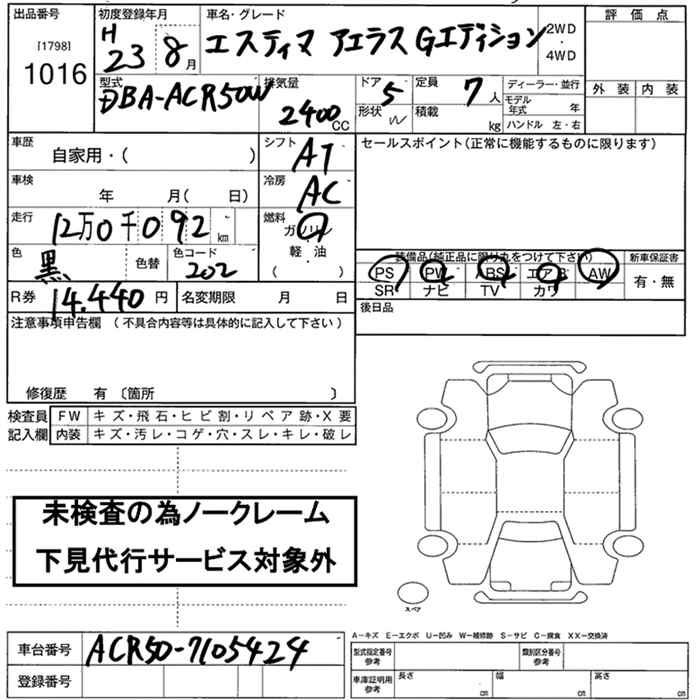 出品番号 初度登録年月 車名・グレード 評価点
[1798] H 23 8月 エスティマ アエラス Gエディション 2WD・4WD
1016
外装 内装
型式 排気量 ドア 5 定員 7人 ディーラー・並行
DBA-ACR50W 2400cc 形状 W 積載 kg モデル年式 年
ハンドル 左・右
車歴 シフト AT セールスポイント(正常に機能するものに限ります)
自家用・( )
車検 年 月( 日) 冷房 AC
走行 12万0千092km 燃料 ガソリン
軽油
( )
色 黒 色替 色コード 202
装備品(純正品に限り丸をつけて下さい) 新車保証書
PS PW ABS エアB AW 有・無
SR ナビ TV カワ
R券 14.440円 名変期限 月 日
後日品
注意事項申告欄 (不具合内容等は具体的に記入して下さい)
修復歴 有 〔箇所 〕
検査員 FW キズ・飛石・ヒビ割・リペア跡・X要
記入欄 内装 キズ・汚レ・コゲ・穴・スレ・キレ・破レ
未検査の為ノークレーム
下見代行サービス対象外
スペア
A-キズ E-エクボ U-凹み W-補修跡 S-サビ C-腐食 XX-交換済
車台番号 ACR50-7105424
型式指定番号 参考 類別区分番号 参考
登録番号
車庫証明用 参考 長さ cm 幅 cm 高さ cm